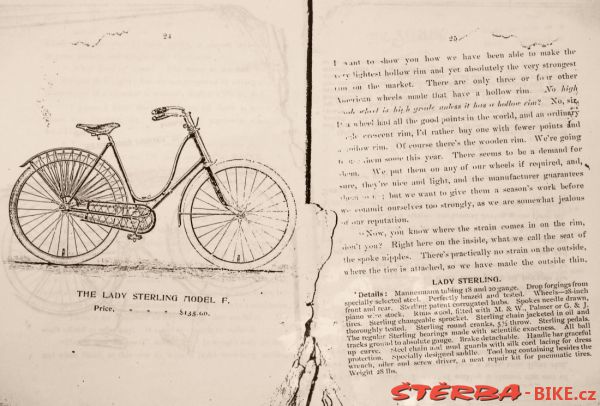 24
THE LADY STERLING MODEL F.
Price, - - - $135.00.
25
want to show you how we have been able to make the
very lightest hollow rim and yet absolutely the very strongest
rim on the market. There are only three or four other
American wheels made that have a hollow rim. No high
grade wheel is high grade unless it has a hollow rim? No, sir,
If a wheel had all the good points in the world, and an ordinary
crescent rim, I'd rather buy one with fewer points and
hollow rim. Of course there's the wooden rim. We're going
to use them some this year. There seems to be a demand for
them. We put them on any of our wheels if required, and,
sure, they're nice and light, and the manufacturer guarantees
but we want to give them a season's work before
we commit ourselves too strongly, as we are somewhat jealous
of our reputation.
"Now, you know where the strain comes in on the rim,
don't you? Right here on the inside, what we call the seat of
the spoke nipples. There's practically no strain on the outside,
where the tire is attached, so we have made the outside thin,
LADY STERLING.
Details: Mannesmann tubing 18 and 20 gauge. Drop forgings from
specially selected steel. Perfectly brazed and tested. Wheels—28-inch
front and rear. Sterling patent corrugated hubs. Spokes needle drawn,
piano wire stock. Rims wood, fitted with M. & W., Palmer or G. & J.
tires. Sterling changeable sprocket. Sterling chain jacketed in oil and
thoroughly tested. Sterling round cranks, throw. Sterling pedals.
The regular Sterling bearings made with scientific exactness. All ball
tracks ground to absolute gauge. Brake detachable. Handle bar graceful
up curve. Steel chain and mud guards with silk cord lacing for dress
protection. Specially designed saddle. Tool bag containing besides the
wrench, oiler and screw driver, a neat repair kit for pneumatic tires.
Weight 28 lbs.
ŠTĚRBA-BIKE.cz